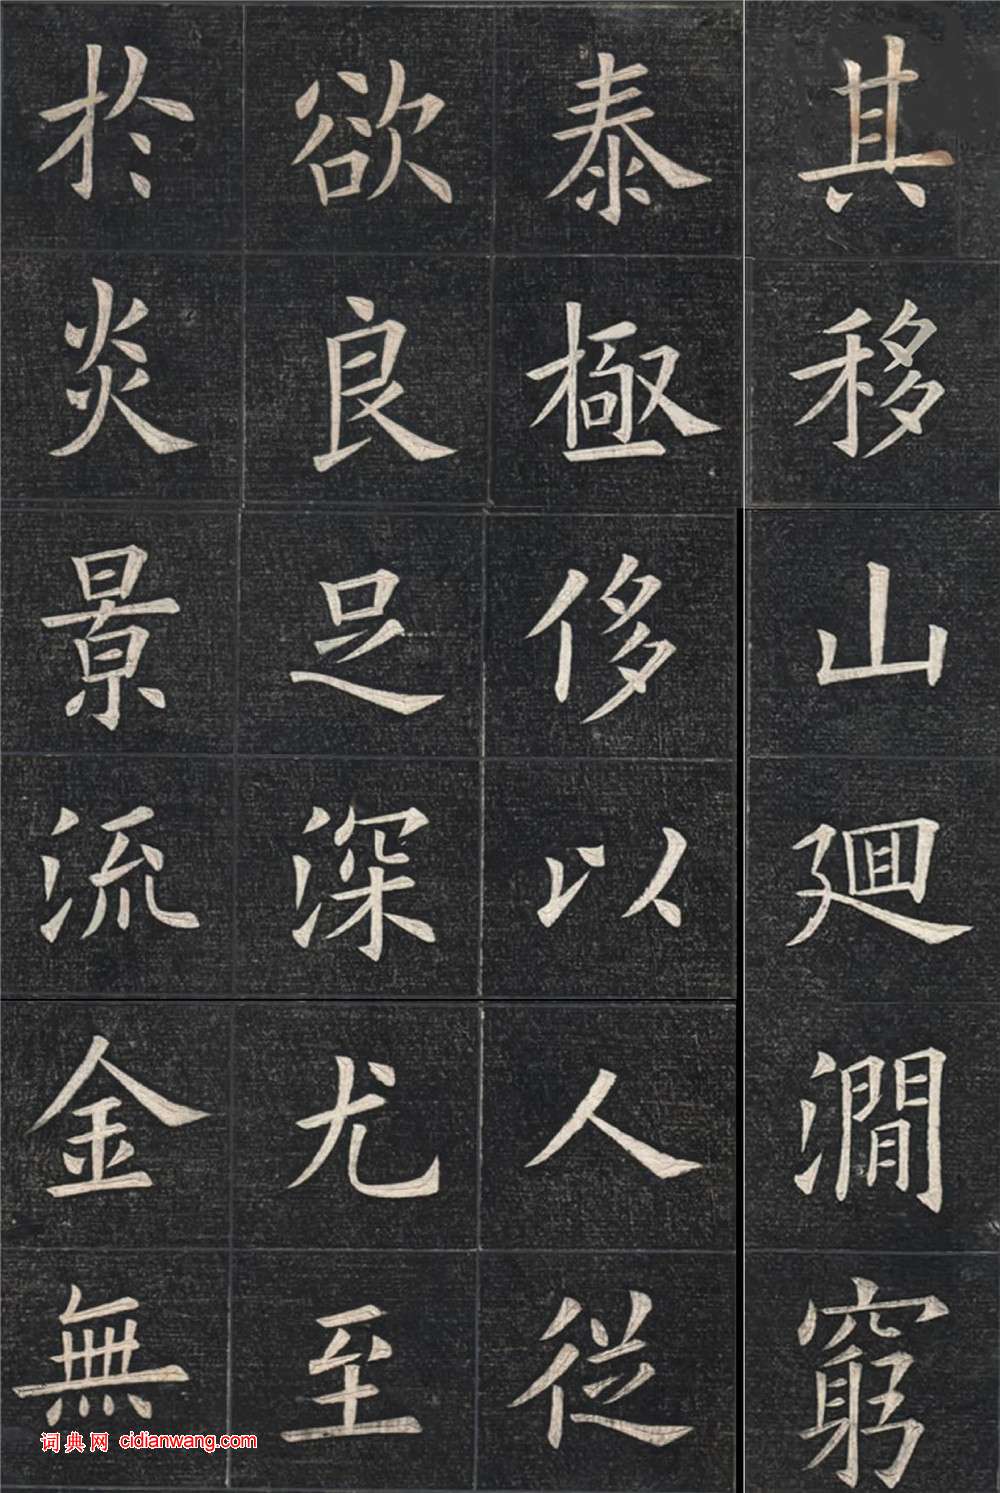 其移山廻澗窮
泰極侈以人從
欲良足深尤至
於炎景流金無
词典网 cidianwang.com